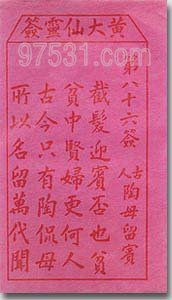 黃大仙靈簽
97531.cn
第八十六簽
古人 陶母留賓
截髮迎賓否也貧
貧中賢婦更何人
古今只有陶侃母
所以名留萬代聞